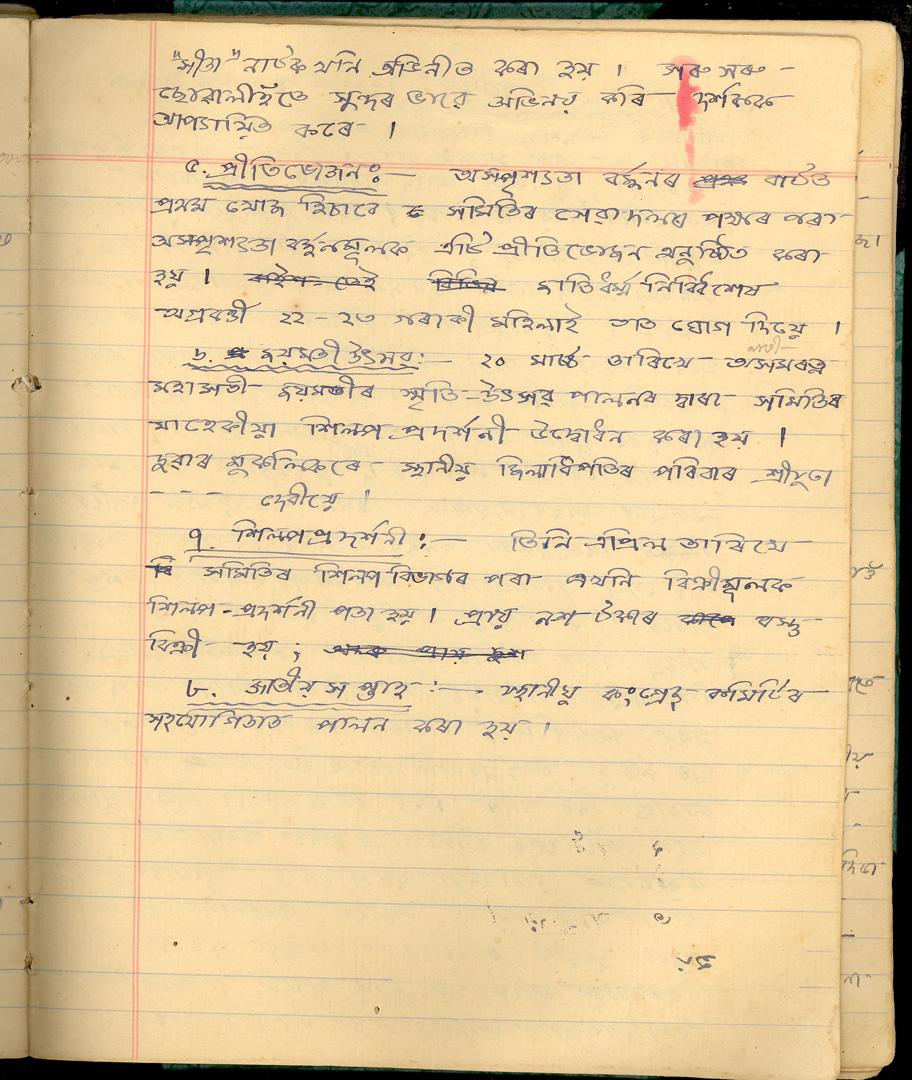 "সীতা" নাটক খনি অভিনীত কৰা হয়। সৰু সৰু -
ছোৱালীহঁতে সুন্দৰ ভাৱে অভিনয় কৰি দৰ্শকক
আপ্যায়িত কৰে।
৫. প্ৰীতিভোজন :— অস্পৃশ্যতা বৰ্জ্জনৰ বাটত
প্ৰথম খোজ হিচাবে সমিতিৰ সেৱাদলৰ পক্ষৰে পৰা
অস্পৃশ্যতা বৰ্জ্জনমূলক এটি প্ৰীতিভোজন অনুষ্ঠিত কৰা
হয়। জাতিধৰ্ম্ম নিৰ্বিশেষ
অগ্ৰৱৰ্ত্তী ২২ - ২৩ গৰাকী মহিলাই তাত যোগ দিয়ে।
৬. জয়মতী উৎসৱ :— ২০ মাৰ্চ্চ তাৰিখে অসমৰত্ন
মহাসতী জয়মতীৰ স্মৃতি-উৎসৱ পালনৰ দ্বাৰা সমিতিৰ
মাহেকীয়া শিল্প প্ৰদৰ্শনী উদ্বোধন কৰা হয়।
দুৱাৰ মুকলিকৰে স্থানীয় জিলাধিপতিৰ পৰিবাৰ শ্ৰীযুতা
- - - দেৱীয়ে।
৭. শিল্পপ্ৰদৰ্শনী :— তিনি এপ্ৰিল তাৰিখে
সমিতিৰ শিল্প বিভাগৰ পৰা এখনি বিক্ৰীমূলক
শিল্প-প্ৰদৰ্শনী পতা হয়। প্ৰায় নশ টকাৰ বস্তু
বিক্ৰী হয়;
৮. জাতীয় সপ্তাহ :— স্থানীয় কংগ্ৰেছ কমিটিৰ
সহযোগিতাত পালন কৰা হয়।